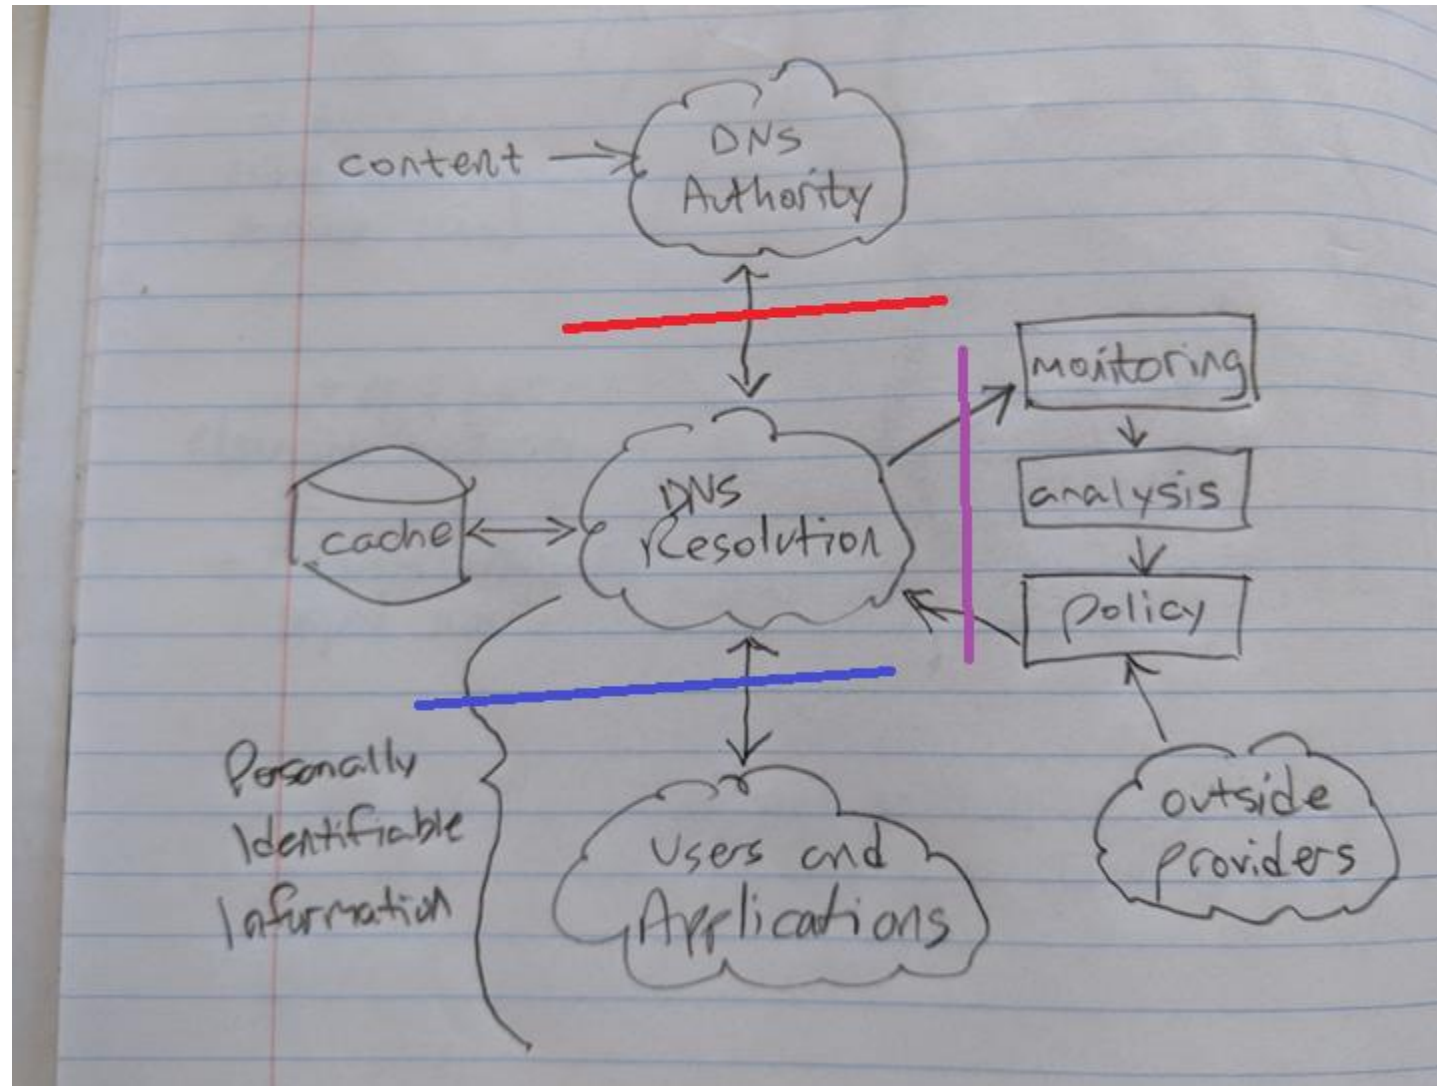 content
DNS
Authority
monitoring
analysis
policy
cache
DNS
Resolution
Personally
Identifiable
Information
Users and
Applications
outside
providers